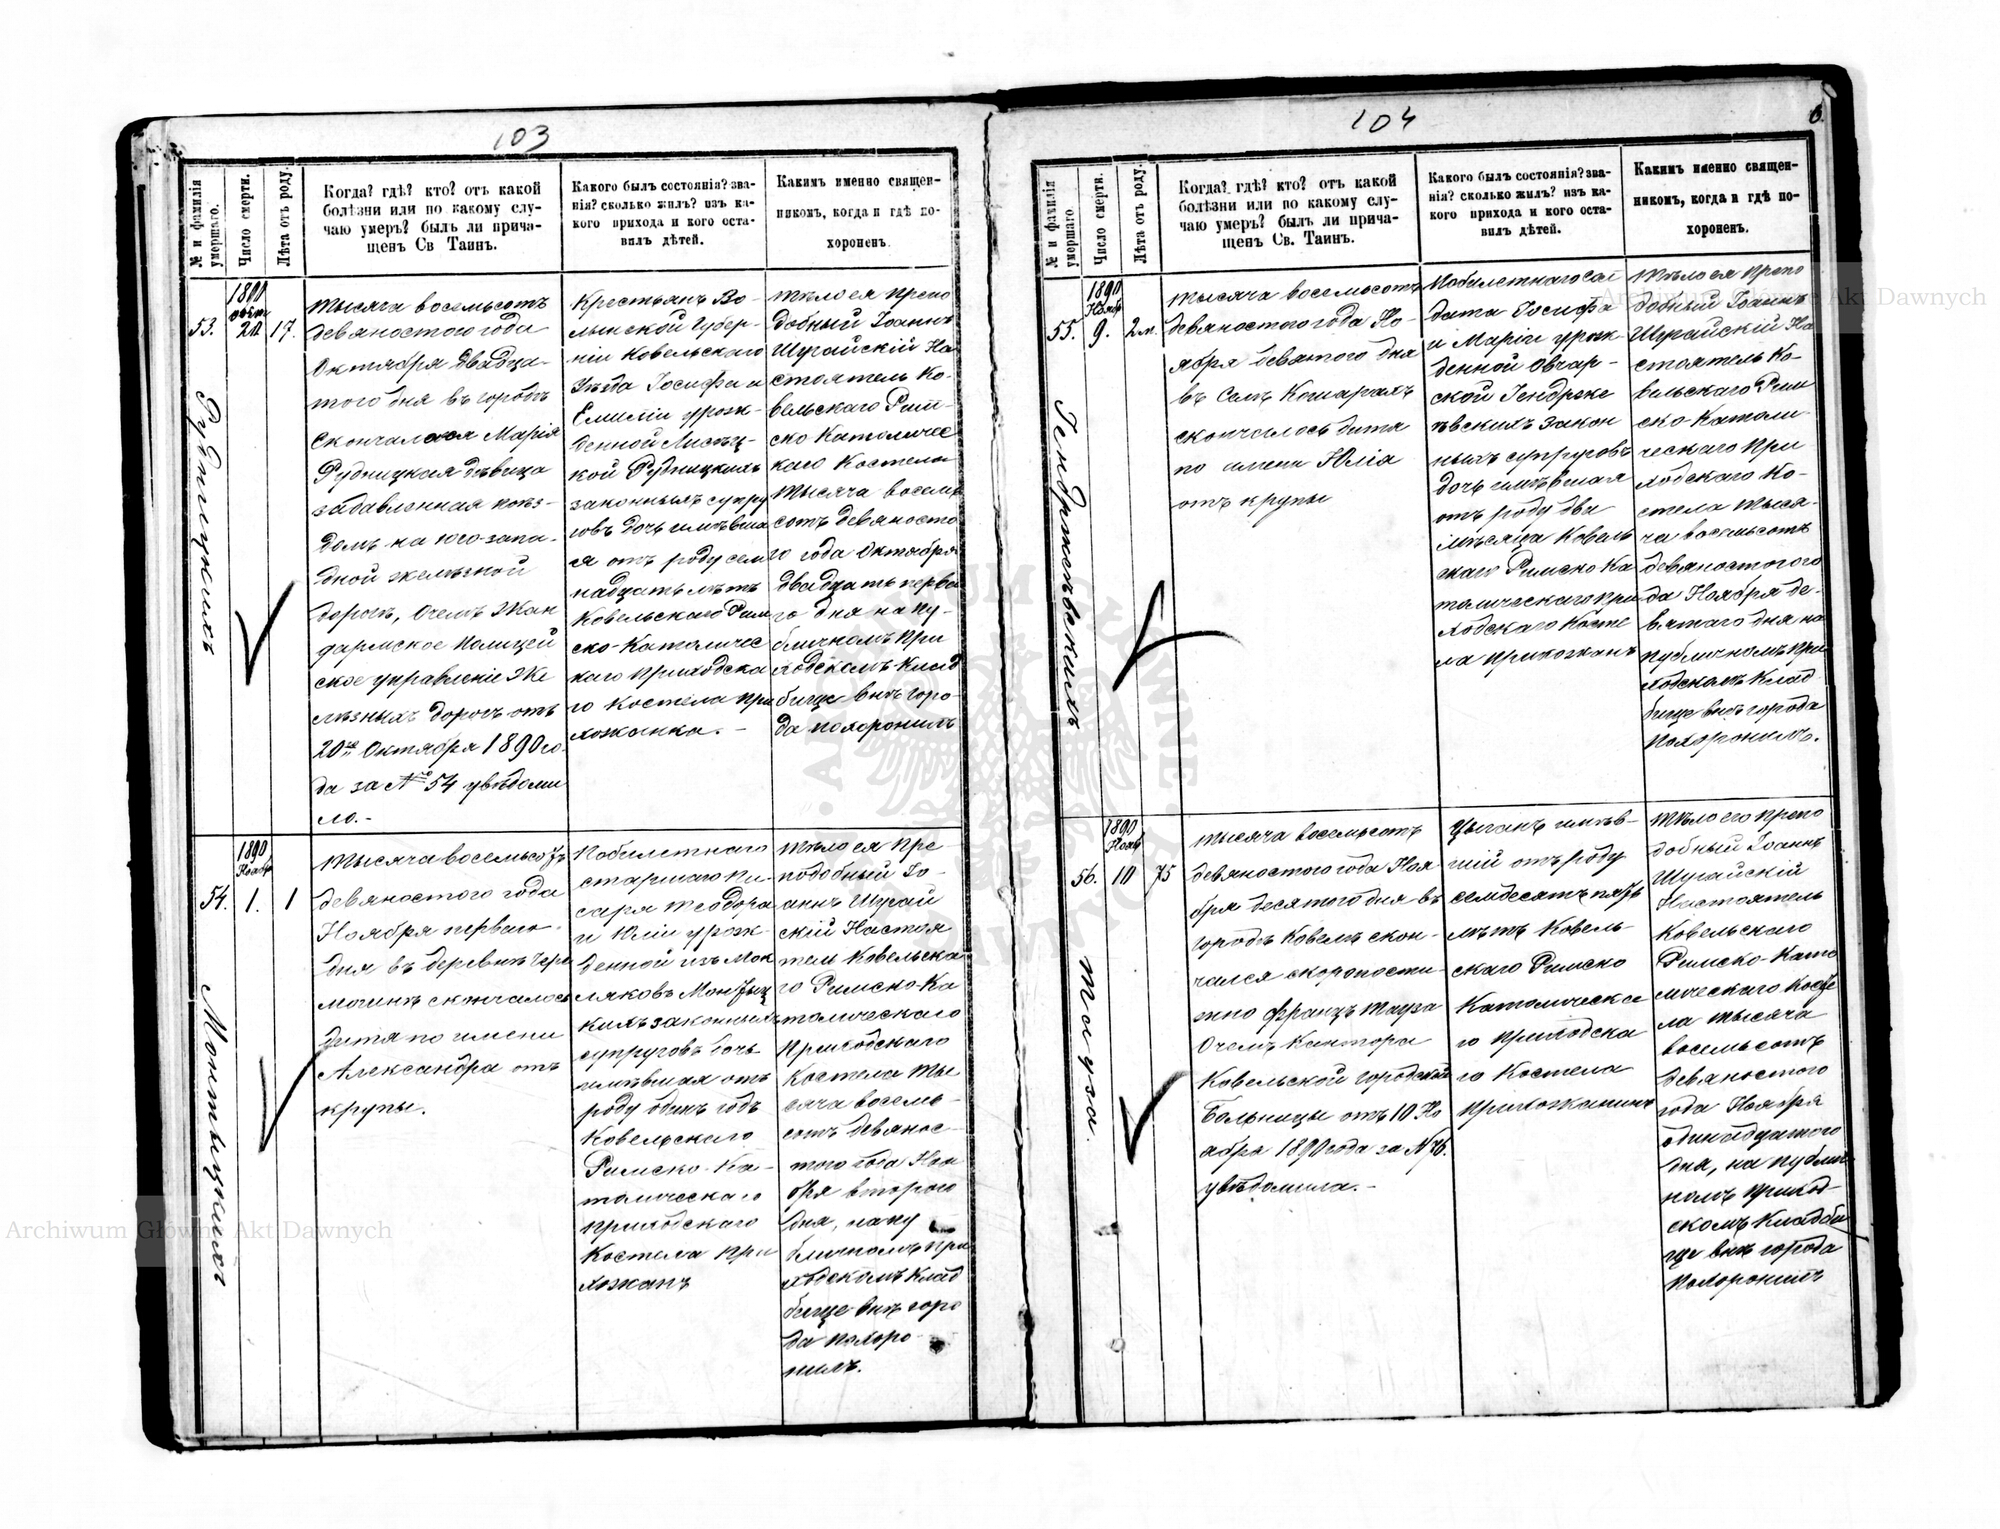 103
№ и фамилія умершаго.
Число смерти.
Лѣта отъ роду.
Когда? гдѣ? кто? отъ какой
болѣзни или по какому слу-
чаю умеръ? былъ ли прича-
щенъ Св Таинъ.
Какого былъ состоянія? зва-
нія? сколько жилъ? изъ ка-
кого прихода и кого оста-
вилъ дѣтей.
Какимъ именно священ-
никомъ, когда и гдѣ по-
хороненъ.
53.
Рудницкихъ
1890
Окт
20
17.
Тысяча восемьсотъ
девяностого года
Октября двадца-
того дня въ городѣ
скончалася Марія
Рудницкая дѣвица
задавленная поѣз-
домъ на юго-запа-
дной желѣзной
дорогѣ, о чемъ Жан
дармское Полицей
ское управленіе Же
лѣзныхъ дорогъ отъ
20го Октября 1890 го-
да за № 54 увѣдоми
ло.-
Крестьянъ Во-
лынской Губер-
ніи Ковельскаго
Уѣзда Іосифа и
Емиліи урож-
денной
кой Рудницкихъ
законныхъ супру
говъ дочь имѣвша
я отъ роду сем
надцать лѣтъ
Ковельскаго Рим
ско-Католичес
каго Приходска
го Костела при
хожанка. -
Тѣло ея препо
добный Іоаннъ
Шугайскій На
стоятель Ко-
вельскаго Рим-
ско Католичес
каго Костела
Тысяча восемь
сотъ девяносто
го года Октября
двадцать перва
го дня на пу-
бличномъ при
ходскомъ клад
бище внѣ горо-
да похоронилъ
54.
Монтвицкихъ
1890
Ноябр
1.
1
Тысяча восемьсотъ
девяностого года
Ноября перваго
дня въ деревнѣ Чере
мошнѣ скончалось
дитя по имени
Александра отъ
крупы.
Побилетнаго
старшаго пи-
саря Теодора
и Юліи урож-
денной изъ Мок
ляковъ
кихъ законныхъ
супруговъ дочь
имѣвшая отъ
роду одинъ годъ
Ковельскаго
Римско-Ка-
толическаго
Приходскаго
Костела при
хожанъ
Тѣло ея Пре-
подобный Іо-
аннъ Шугай
скій Настоя
тель Ковельска
го Римско-Ка
толическаго
Приходскаго
Костела Ты-
сяча восемь-
сотъ девянос-
того года Ноя
бря второго
дня, на пу
бличномъ при
ходскомъ клад
бище внѣ горо
да похоро-
нилъ.
104
6.
№ и фамилія умершаго.
Число смерти.
Лѣта отъ роду.
Когда? гдѣ? кто? отъ какой
болѣзни или по какому слу-
чаю умеръ? былъ ли прича-
щенъ Св. Таинъ.
Какого былъ состоянія? зва-
нія? сколько жилъ? изъ ка-
кого прихода и кого оста-
вилъ дѣтей.
Какимъ именно священ-
никомъ, когда и гдѣ по-
хороненъ.
55.
Гендржеѣвскихъ
1890
Ноябр
9.
2 м.
Тысяча восемьсотъ
девяностого года Но-
ября девятого дня
въ Селѣ Кошарахъ
скончалось дитя
по имени Юлія
отъ крупы
Побилетнаго Сол
дата Іосифа
и Маріи урож
денной Овчар-
ской Гендрже
ѣвскихъ закон
ныхъ супруговъ
дочь имѣвшая
отъ роду два
мѣсяца Ковель
скаго Римско Ка
толическаго При
ходскаго Косте
ла прихожанъ
Тѣло ея Препо
добный Іоаннъ
Шугайскій На
стоятель Ко-
вельскаго Рим
ско-Католи-
ческаго При
ходскаго Ко-
стела Тыся-
ча восемьсотъ
девяностого го
да Ноября де-
вятаго дня на
публичномъ при
ходскомъ клад
бище внѣ города
похоронилъ.
56.
Тауза.
1890
Ноябр
10
75
Тысяча восемьсотъ
девяностого года Ноя
бря десятого дня въ
городѣ Ковелѣ скон-
чался скоропости-
жно Францъ Тауза
О чемъ Контора
Ковельской городской
Больницы отъ 10 Но
ября 1890 года за № 76.
увѣдомила.-
Цыганъ имѣв-
шій отъ роду
семдесятъ пять
лѣтъ Ковель-
скаго Римско
Католическа
го Приходска
го Костела
прихожанинъ
Тѣло его Препо
добный Іоаннъ
Шугайскій
Настоятель
Ковельскаго
Римско-Като
лическаго Косте
ла Тысяча
восемьсотъ
девяностого
года Ноября
одинадцатого
дня, на публич
номъ приход-
скомъ кладби
ще внѣ города
похоронилъ
Archiwum Główne Akt Dawnych
Archiwum Główne Akt Dawnych